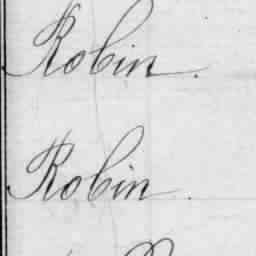 Robin.
Robin.